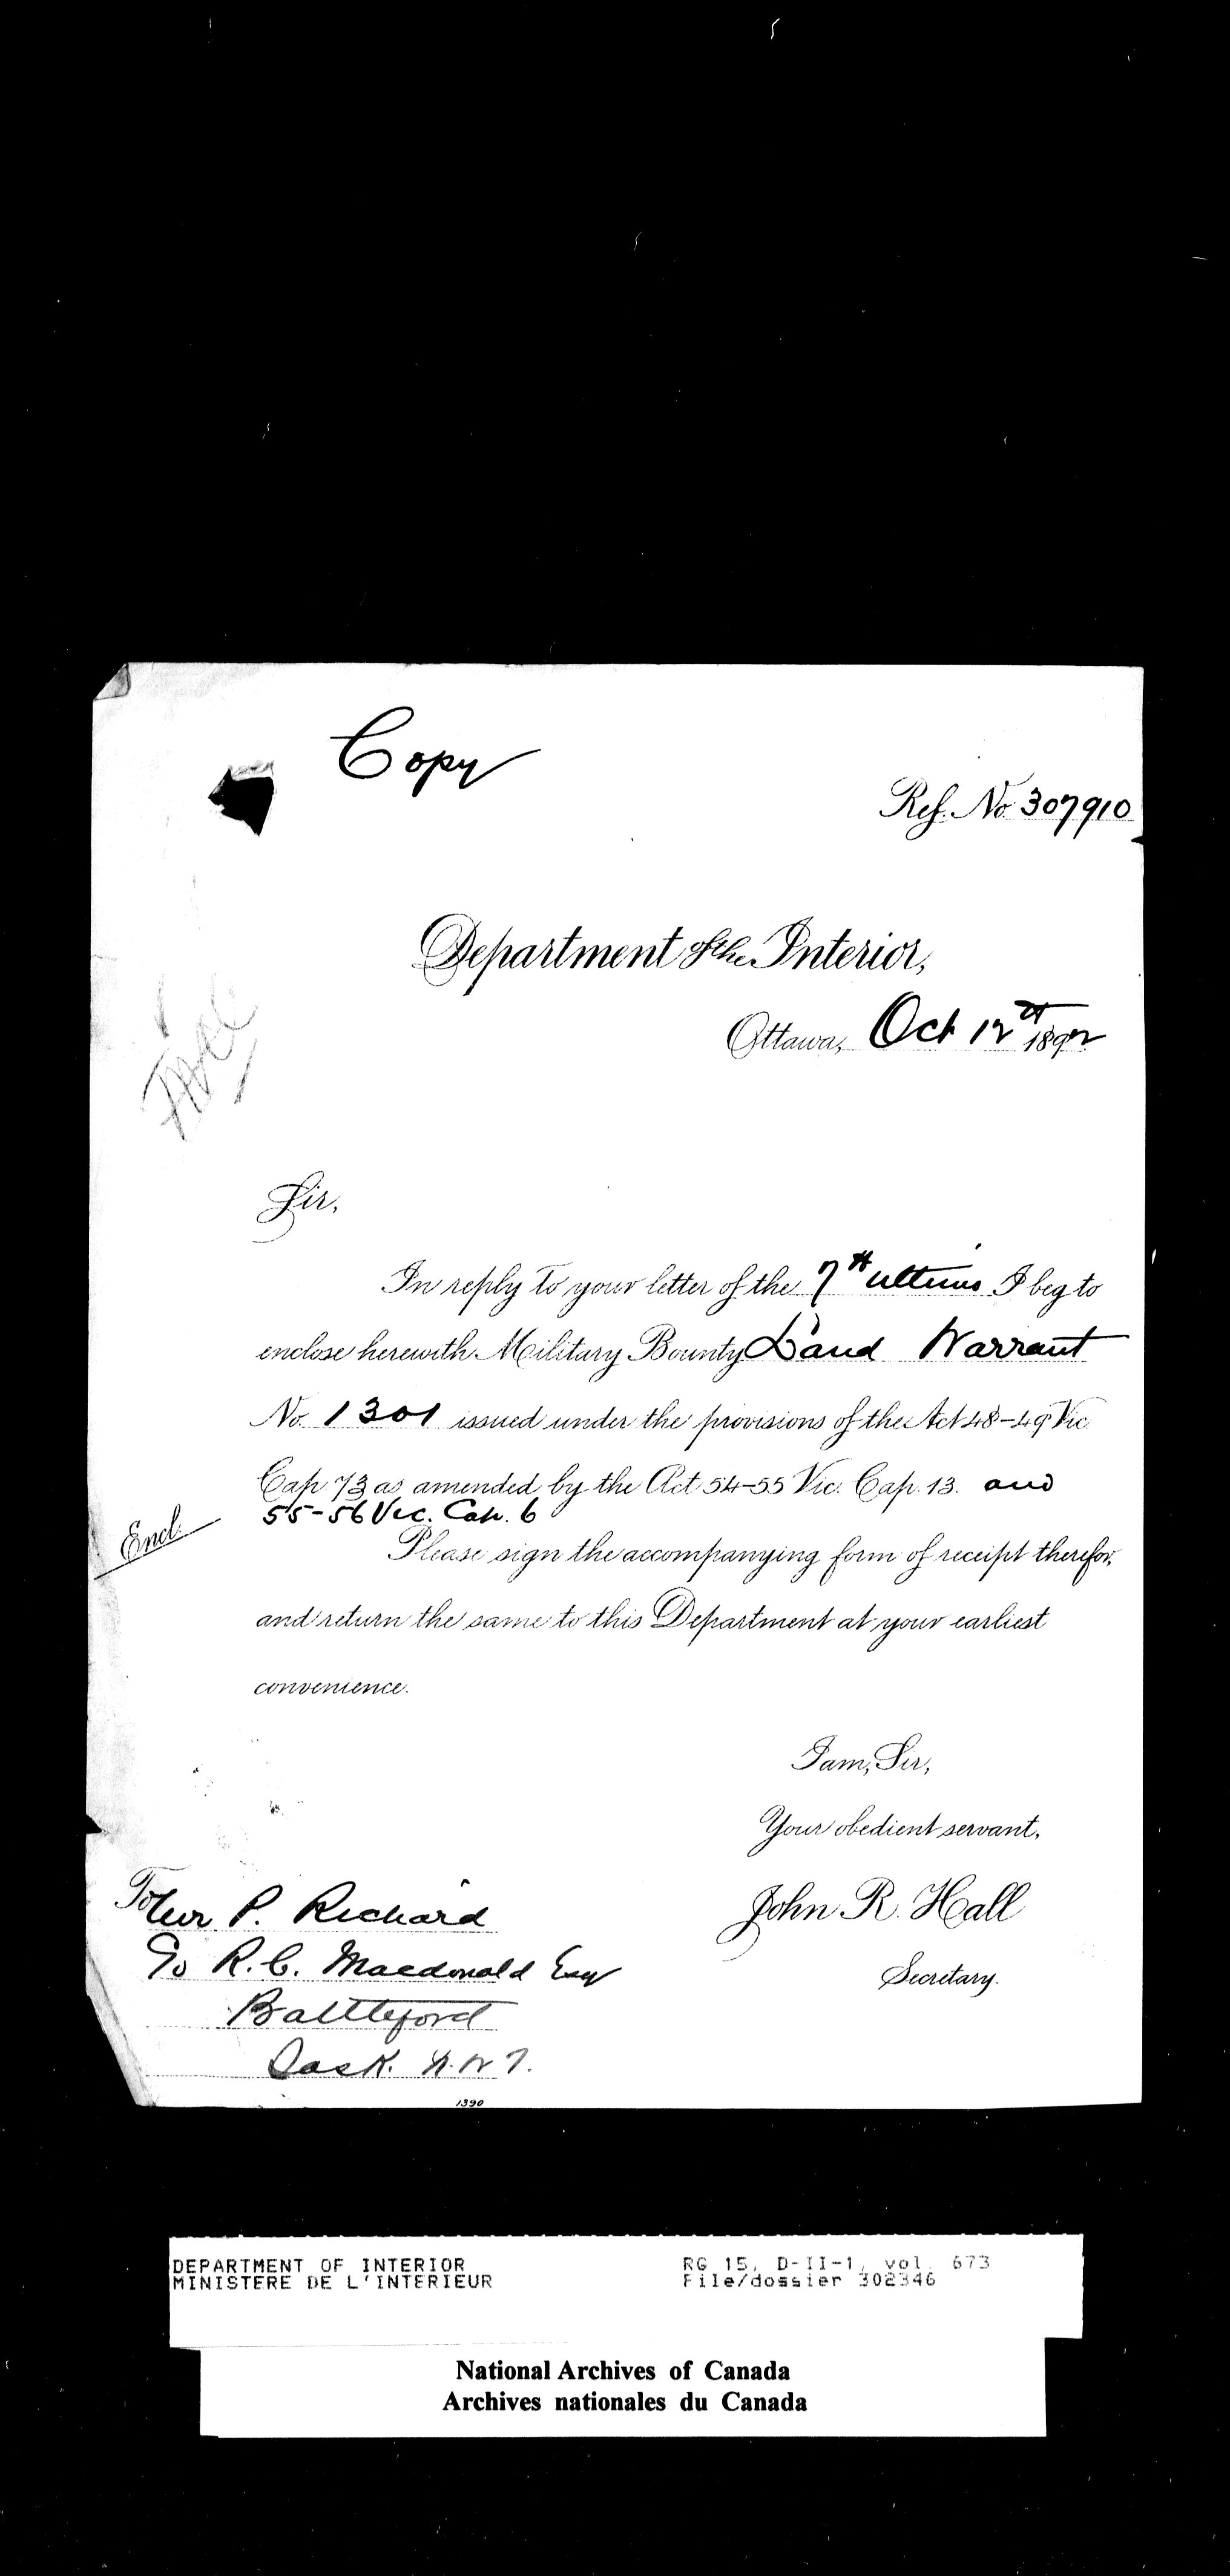 Copy
Ref. No. 307910
Department of the Interior,
Ottawa, Oct 12th 1892
Sir,
In reply to your letter of the 7th ultimo I beg to
enclose herewith Military Bounty Land Warrant
No. 1301 issued under the provisions of the Act 48-49 Vic.
Cap. 73 as amended by the Act 54-55 Vic. Cap. 13. and
55-56 Vic. Cap. 6
Encl.
Please sign the accompanying form of receipt therefor,
and return the same to this Department at your earliest
convenience.
I am, Sir,
Your obedient servant,
John R. Hall
Secretary.
To P. Richard
c/o R. C. Macdonald Esq
Battleford
Sask. N.W.T.
1390
DEPARTMENT OF INTERIOR
MINISTERE DE L'INTERIEUR
RG 15, D-II-1, vol. 673
File/dossier 302346
National Archives of Canada
Archives nationales du Canada